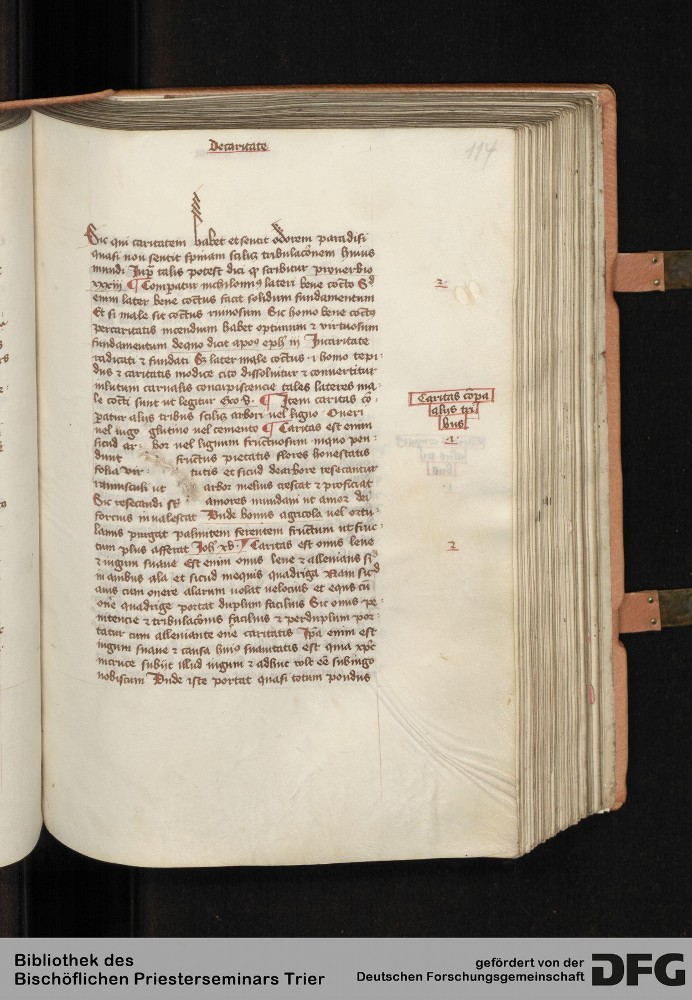 De caritate
114
Sic qui caritatem habet et sentit odorem paradisi
quasi non sentit spinam scilicet tribulacionem huius
mundi Iux talis potest dici qd scribitur proverbio
xxxiii ¶ Compatur nichilominus lateri bene cocto Sed
enim later bene coctus facit solidum fundamentum
Et si male sit coctus ruinosum Sic homo bene coctus
per caritatis incendium habet optimum et virtuosum
fundamentum de quo dicit apos eph iii In caritate
radicati et fundati Sed later male coctus i homo tepi
dus et caritatis modice cito dissolvitur et convertitur
in lutum carnalis concupiscencie tales lateres ma
le cocti sunt ut legitur Exo v. ¶ Item caritas co
patur aliis tribus scilicet arbori vel ligno Oneri
vel iugo glutino vel cemento ¶ Caritas est enim
sicud ar bor vel lignum fructuosum in quo pen
dunt fructus pietatis flores honestatis
folia vir tutis et sicud de arbore resecantur
ramusculi ut arbor melius crescat et proficiat
Sic resecandi st amores mundani ut amor dei
forcius in valescat Unde bonus agricola vel ortu
lanus purgat palmitem ferentem fructum ut fruc
tum plus afferat Joh xv. ¶ Caritas est onus leve
et iugum suave Est enim onus leve et allevians sicud
in avibus ala et sicud in equis quadriga Nam sicud
avis cum onere alarum volat velocius et equus cu
one quadrige portat duplum facilius Sic onus pe
nitencie et tribulacionis facilius et per duplum por
tatur cum alleviante one caritatis Ipa enim est
iugum suave et causa huius suavitatis est quia xpc
in cruce subiit illud iugum et adhuc volt ee sub iugo
nobiscum Unde iste portat quasi totum pondus
2
Caritas copa
aliis tri
bus
1
2
Bibliothek des
Bischöflichen Priesterseminars Trier
gefördert von der
Deutschen Forschungsgemeinschaft
DFG